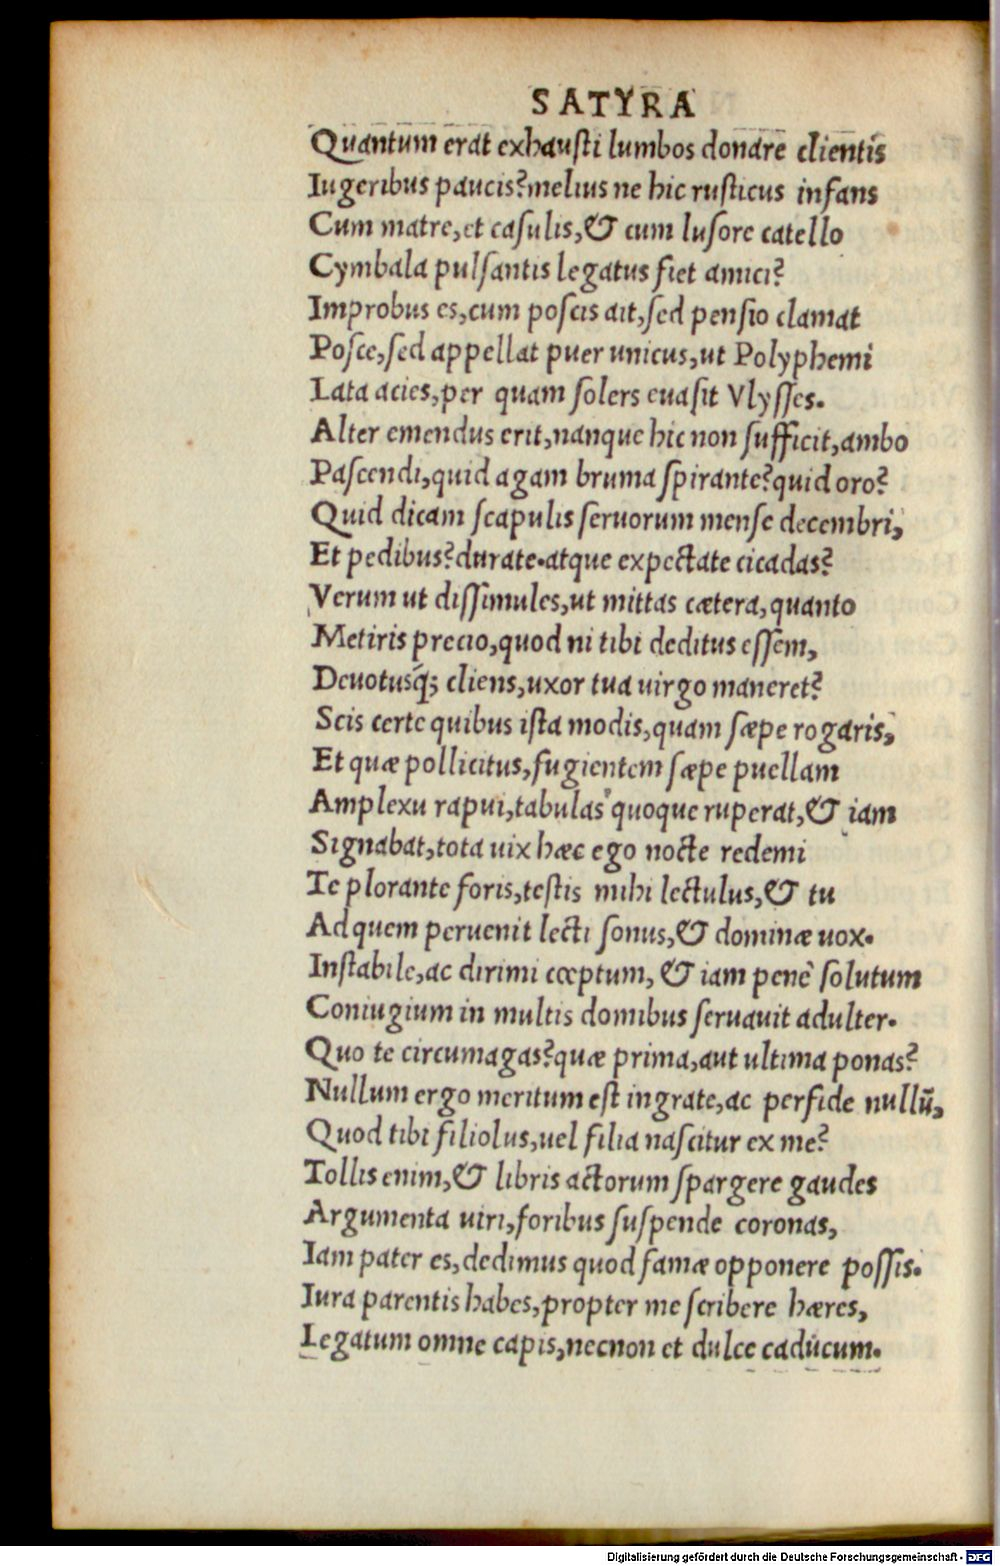 SATYRA
Quantum erat exhausti lumbos donare clientis
Iugeribus paucis?melius ne hic rusticus infans
Cum matre,et casulis,& cum lusore catello
Cymbala pulsantis legatus fiet amici?
Improbus es,cum poscis ait,sed pensio clamat
Posce,sed appellat puer unicus,ut Polyphemi
Lata acies,per quam solers euasit Vlysses.
Alter emendus erit,nanque hic non sufficit,ambo
Pascendi,quid agam bruma spirante?quid oro?
Quid dicam scapulis seruorum mense decembri,
Et pedibus?durate.atque expectate cicadas?
Verum ut dissimules,ut mittas cætera,quanto
Metiris precio,quod ni tibi deditus essem,
Deuotusq́; cliens,uxor tua uirgo maneret?
Scis certe quibus ista modis,quam sæpe rogaris,
Et quæ pollicitus,fugientem sæpe puellam
Amplexu rapui,tabulas quoque ruperat,& iam
Signabat,tota uix hæc ego nocte redemi
Te plorante foris,testis mihi lectulus,& tu
Ad quem peruenit lecti sonus,& dominæ uox.
Instabile,ac dirimi cœptum, & iam penè solutum
Coniugium in multis domibus seruauit adulter.
Quo te circumagas?quæ prima,aut ultima ponas?
Nullum ergo meritum est ingrate,ac perfide nullū,
Quod tibi filiolus,uel filia nascitur ex me?
Tollis enim,& libris actorum spargere gaudes
Argumenta uiri,foribus suspende coronas,
Iam pater es,dedimus quod famæ opponere possis.
Iura parentis habes,propter me scribere hæres,
Legatum omne capis,necnon et dulce caducum.
Digitalisierung gefördert durch die Deutsche Forschungsgemeinschaft - DFG